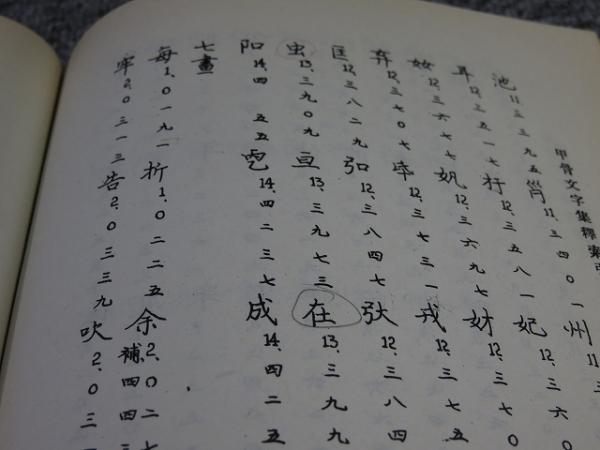 甲骨文字集釋索引
池 11.三三九五 筲 11.三四〇一 州 11.三
耳 12.三五一七 扜 12.三五八一 妃 12.三六〇
妏 12.三六七七 㚤 12.三六九七 妌 12.三七〇
弃 12.三七〇七 𢦏 12.三七三一 戎 12.三七五
匡 12.三八二九 弘 12.三八四七 㢧 12.三八四
虫 13.三九〇九 亘 13.三九七三 在 13.三九九
阳 14.四 五五 雹 14.四二三七 成 14.四二五
七畫
每 1.〇一九一 折 1.〇二二五 余 2.〇二七 補.四四三
牢 2.〇三一三 告 2.〇三三九 吹 2.〇三